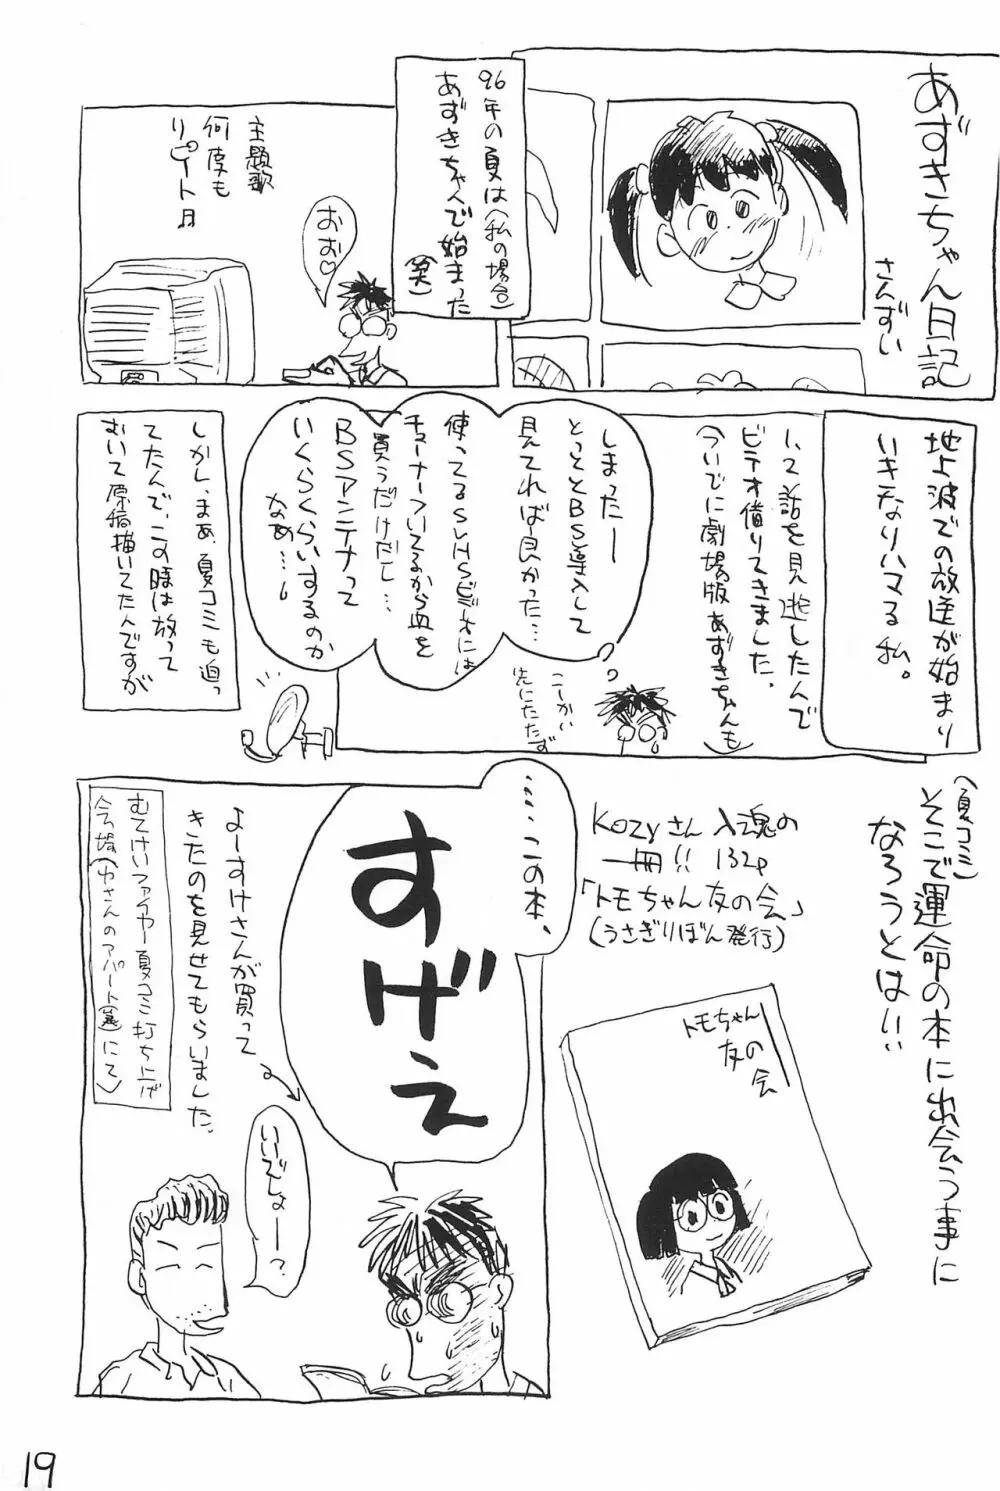 あずきちゃん日記。
さんずい
96年の夏は(私の場合)
あずきちゃんで始まった
(笑)
主題歌
何度も
リピート♪
おお♡
地上波での放送が始まり
いキナリハマる私。
1、2話を見逃したんで
ビデオ借りてきました。
(ついでに劇場版あずきちゃんも)
しまったー
とっととBS導入して
見てれば良かった…
使ってるSVHSビデオには
チューナーついてるから皿を
買うだけだし…
BSアンテナって
いくらくらいするのか
なぁ…
こーかい
先にたたず
しかし、まぁ、夏コミも迫っ
てたんで、この時は放って
おいて原稿描いてたんですが
(夏コミ)
そこで運命の本に出会う事に
なろうとは!!
Kozyさん入魂の
一冊!! 132p
「トモちゃん友の会」
(うさぎりぼん発行)
トモちゃん
友の会
……この本、
すげえ
よーすけさんが買って
きたのを見せてもらいました。
むてけいファイヤー夏コミ打ち上げ
会場(中さんのアパート(笑)にて)
いいでしょー?
19